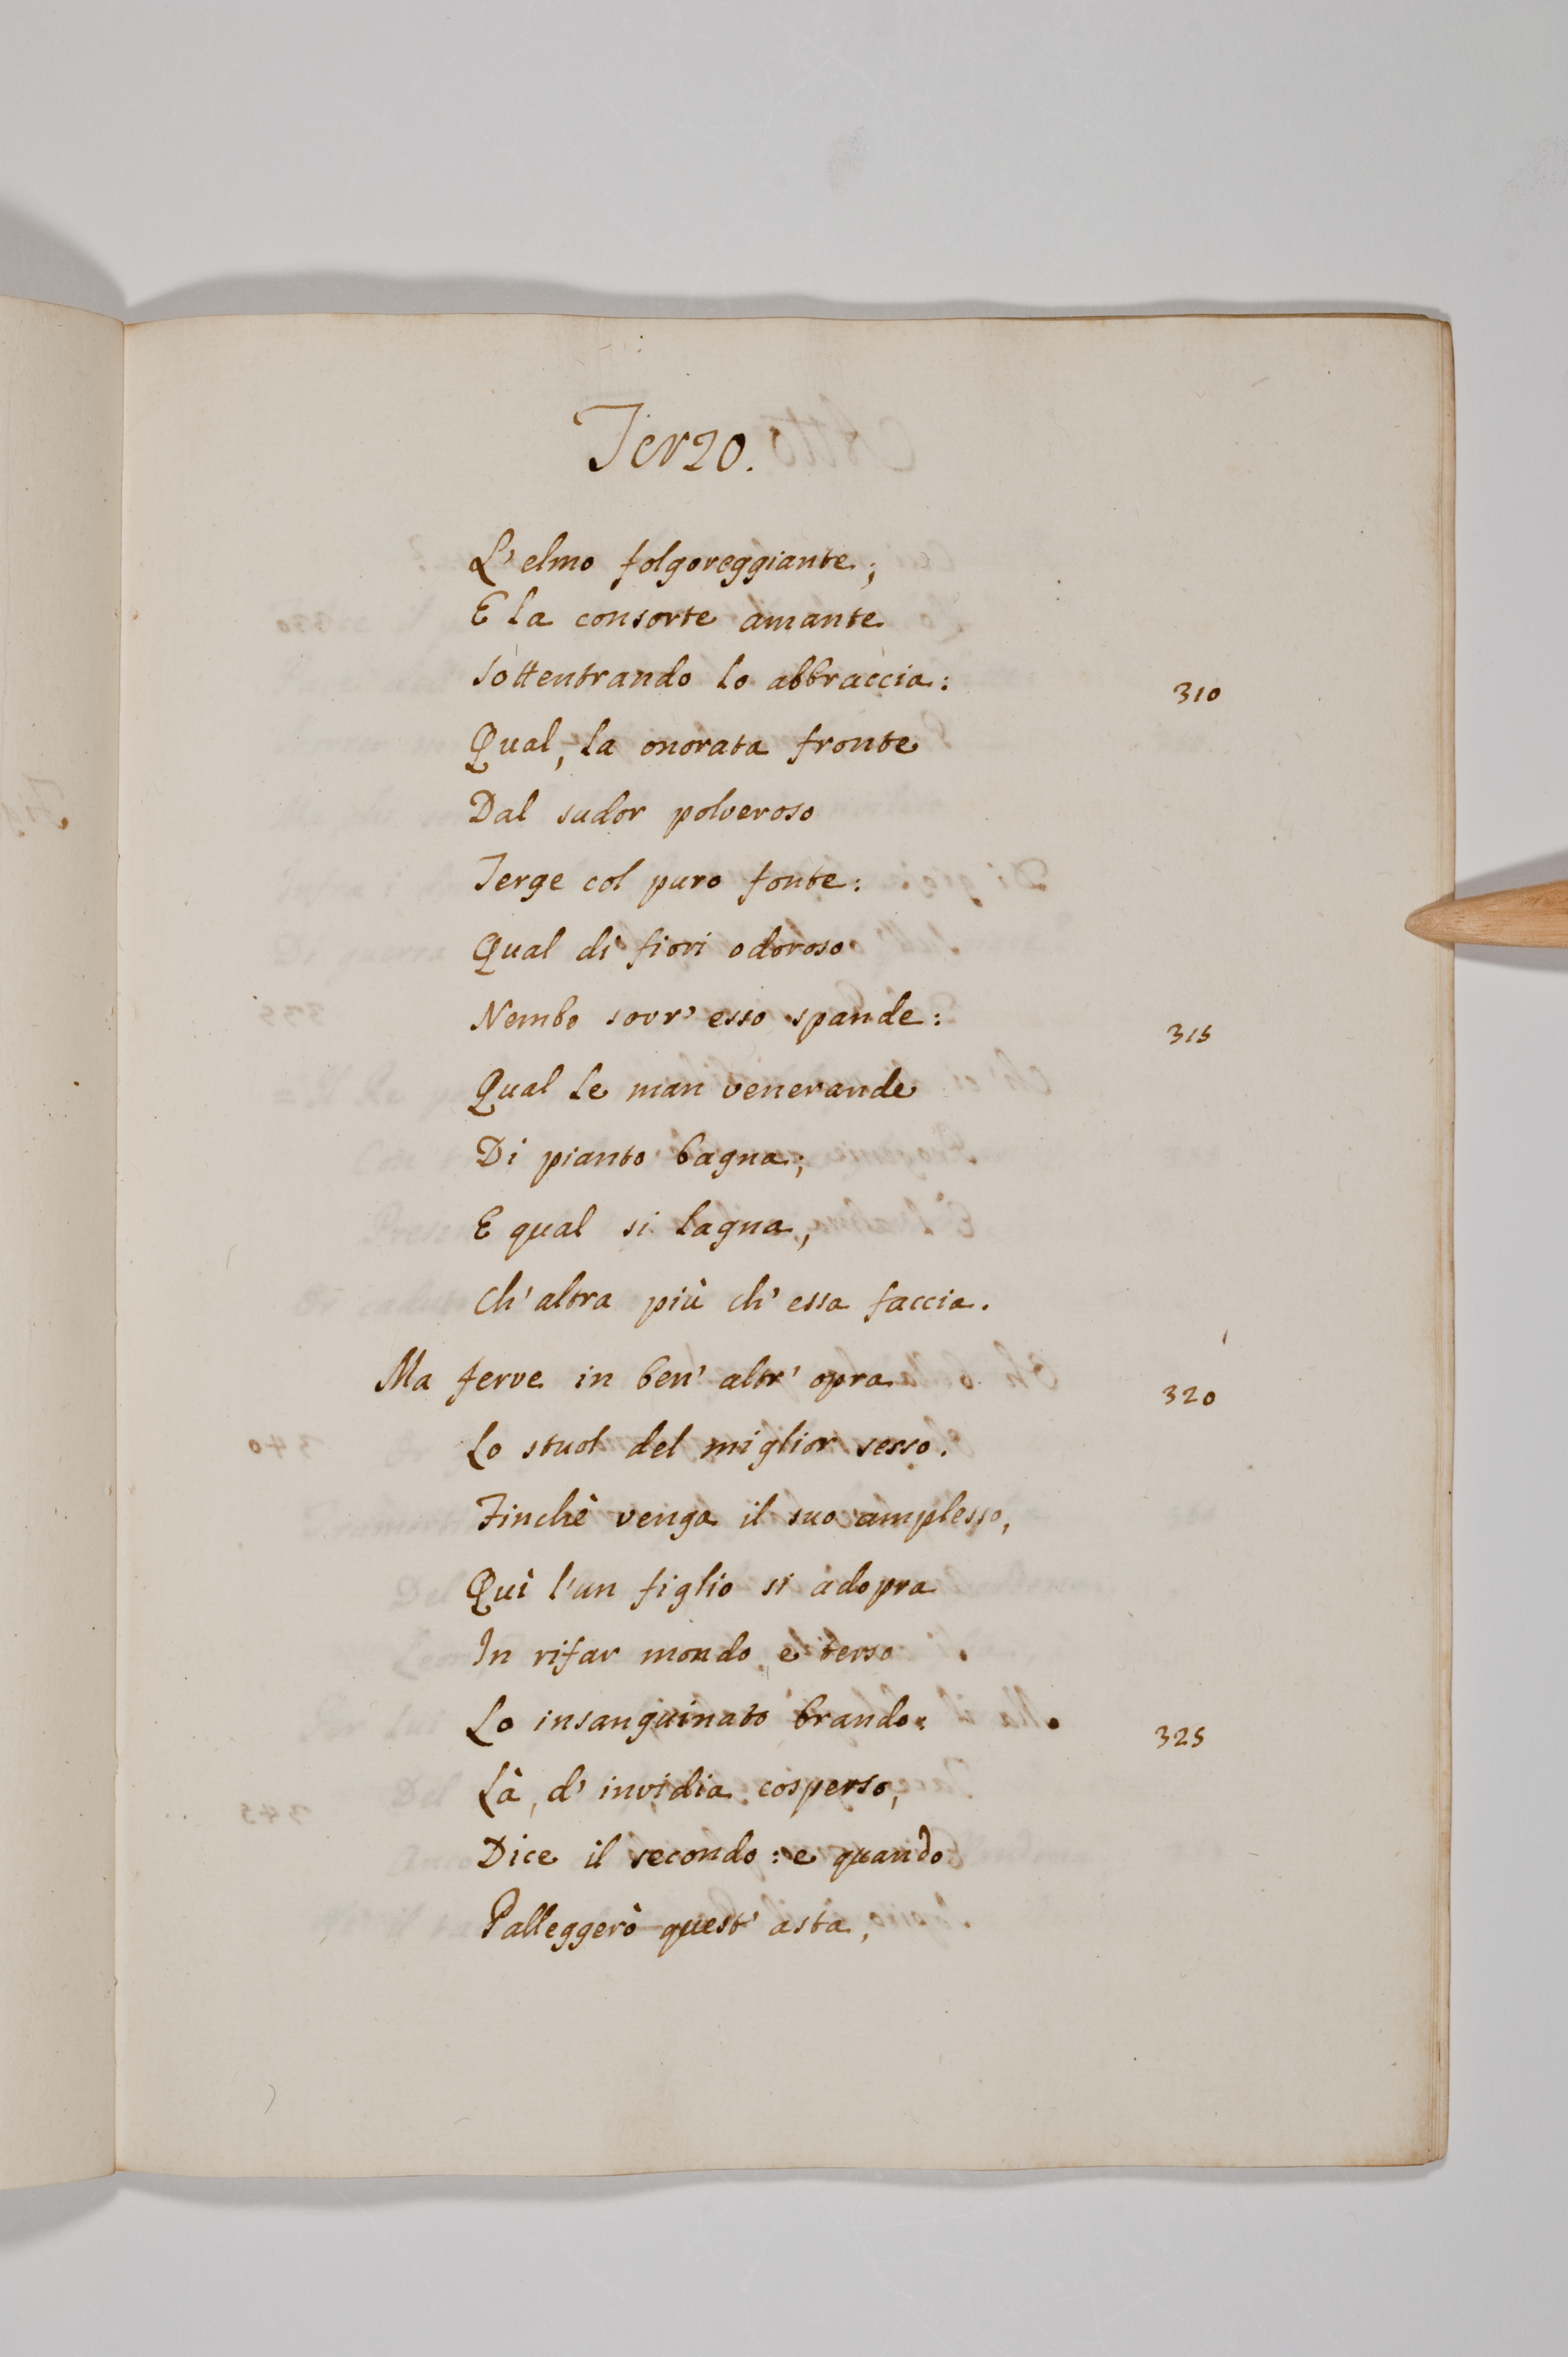 Terzo.
L'elmo folgoreggiante;
E la consorte amante
Sottentrando lo abbraccia:
310
Qual, la onorata fronte
Dal sudor polveroso
Terge col puro fonte:
Qual di fiori odoroso
Nembo sovr' esso spande:
315
Qual le man venerande
Di pianto bagna;
E qual si lagna,
Ch' altra più ch' essa faccia.
Ma ferve in ben' altr' opra
320
Lo stuol del miglior sesso.
Finchè venga il suo amplesso,
Quì l'un figlio si adopra
In rifar mondo, e terso
Lo insanguinato brando:
325
Là, d' invidia cosperso,
Dice il secondo: e quando
Palleggerò quest' asta,